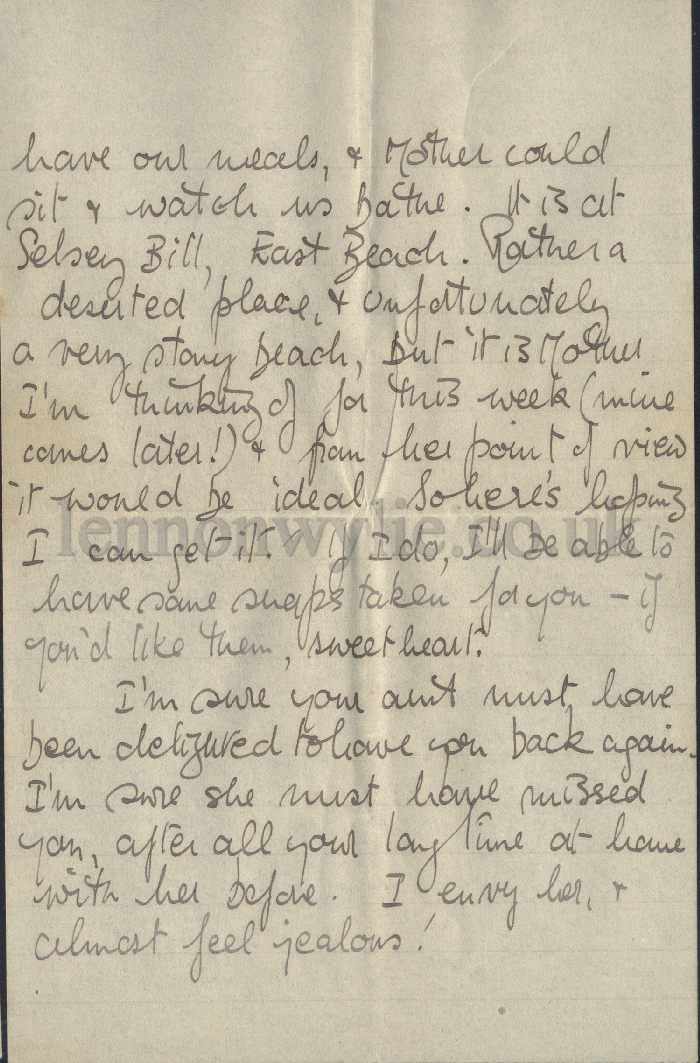 have our meals, & Mother could
sit & watch us bathe. It is at
Selsey Bill, East Beach. Rather a
deserted place, & unfortunately
a very stony beach, but it is Mother
I'm thinking of for this week (mine
comes later!) & from her point of view
it would be ideal. So here's hoping
I can get it! If I do, I'll be able to
lennonwylie.co.uk
have some snaps taken for you – if
you'd like them, sweetheart.
I'm sure your aunt must have
been delighted to have you back again.
I'm sure she must have missed
you, after all your long time at home
with her before. I envy her, &
almost feel jealous!